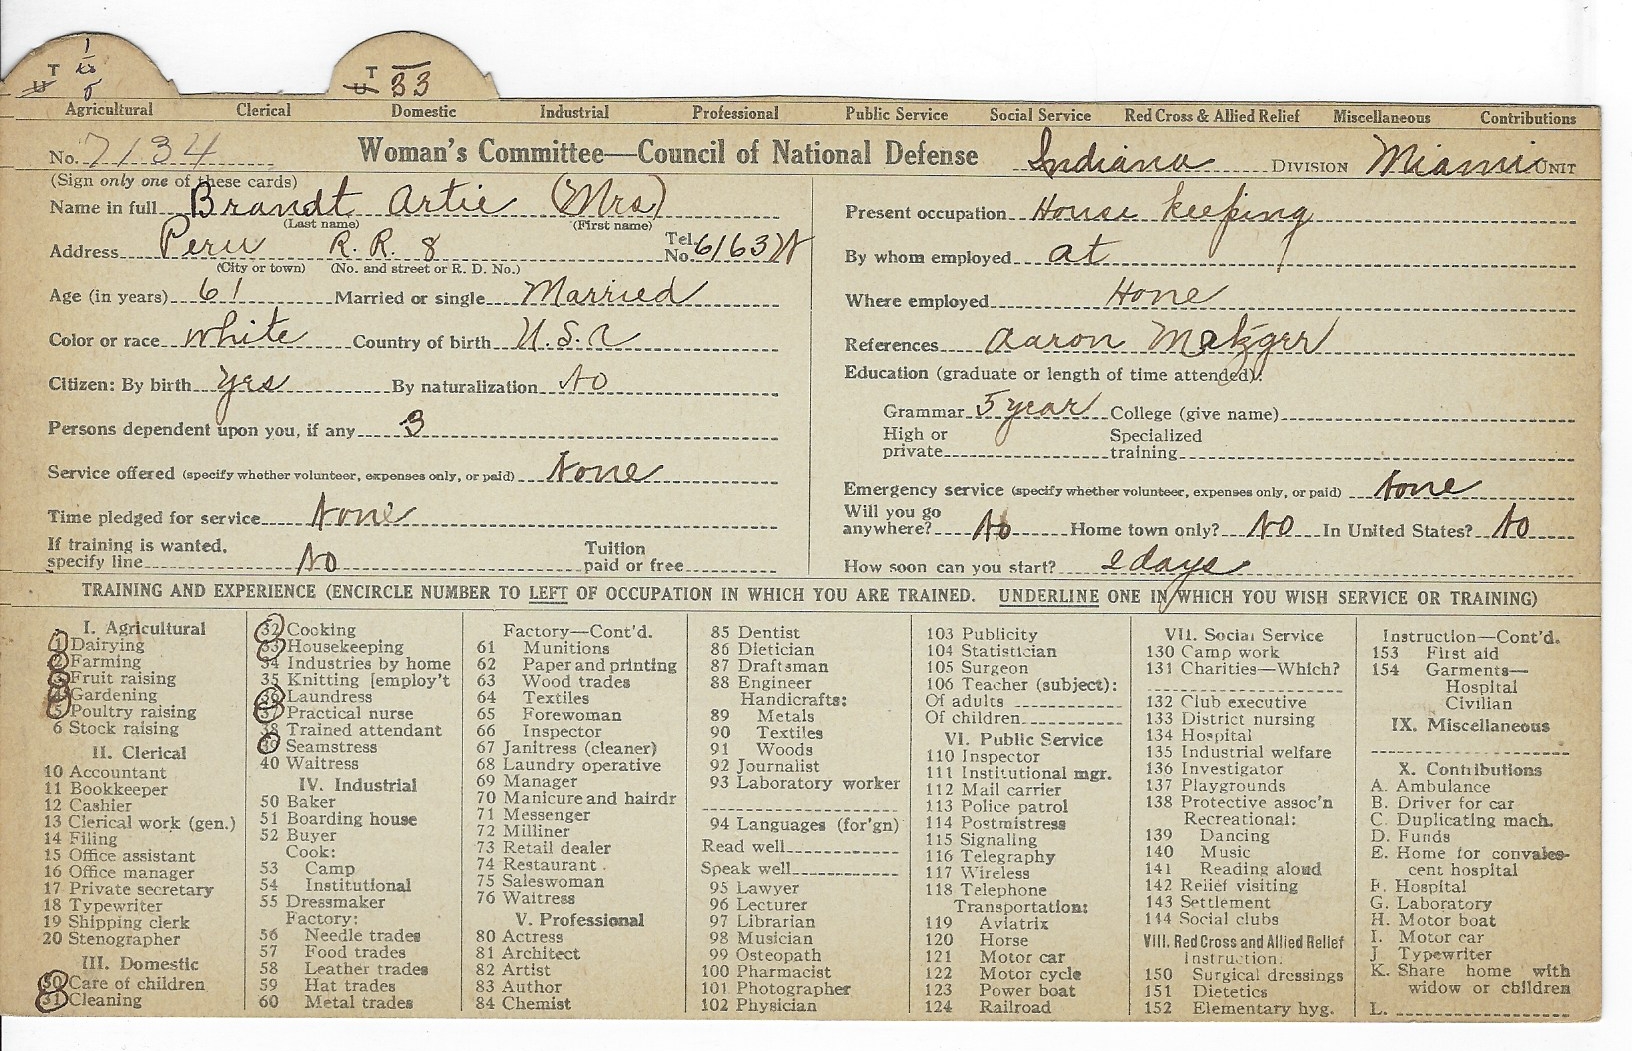 T
U
T
U 33
Agricultural Clerical Domestic Industrial Professional Public Service Social Service Red Cross & Allied Relief Miscellaneous Contributions
No. 7134 Woman's Committee—Council of National Defense Indiana DIVISION Miami UNIT
(Sign only one of these cards)
Name in full Brandt Artie (Mrs)
(Last name) (First name)
Address Peru R. R. 8 Tel. No. 61632
(City or town) (No. and street or R. D. No.)
Age (in years) 61 Married or single Married
Color or race white Country of birth U.S.A
Citizen: By birth yes By naturalization No
Persons dependent upon you, if any 3
Service offered (specify whether volunteer, expenses only, or paid) None
Time pledged for service None
If training is wanted,
specify line No Tuition
paid or free
Present occupation House keeping
By whom employed at
Where employed Hone
References Aaron
Education (graduate or length of time attended):
Grammar 5 year College (give name)
High or
private Specialized
training
Emergency service (specify whether volunteer, expenses only, or paid) None
Will you go
anywhere? No Home town only? NO In United States? No
How soon can you start? 2 days
TRAINING AND EXPERIENCE (ENCIRCLE NUMBER TO LEFT OF OCCUPATION IN WHICH YOU ARE TRAINED. UNDERLINE ONE IN WHICH YOU WISH SERVICE OR TRAINING)
I. Agricultural
1 Dairying
2 Farming
3 Fruit raising
4 Gardening
5 Poultry raising
6 Stock raising
II. Clerical
10 Accountant
11 Bookkeeper
12 Cashier
13 Clerical work (gen.)
14 Filing
15 Office assistant
16 Office manager
17 Private secretary
18 Typewriter
19 Shipping clerk
20 Stenographer
III. Domestic
30 Care of children
31 Cleaning
32 Cooking
33 Housekeeping
34 Industries by home
35 Knitting [employ't
36 Laundress
37 Practical nurse
38 Trained attendant
39 Seamstress
40 Waitress
IV. Industrial
50 Baker
51 Boarding house
52 Buyer
Cook:
53 Camp
54 Institutional
55 Dressmaker
Factory:
56 Needle trades
57 Food trades
58 Leather trades
59 Hat trades
60 Metal trades
Factory—Cont'd.
61 Munitions
62 Paper and printing
63 Wood trades
64 Textiles
65 Forewoman
66 Inspector
67 Janitress (cleaner)
68 Laundry operative
69 Manager
70 Manicure and hairdr
71 Messenger
72 Milliner
73 Retail dealer
74 Restaurant
75 Saleswoman
76 Waitress
V. Professional
80 Actress
81 Architect
82 Artist
83 Author
84 Chemist
85 Dentist
86 Dietician
87 Draftsman
88 Engineer
Handicrafts:
89 Metals
90 Textiles
91 Woods
92 Journalist
93 Laboratory worker
94 Languages (for'gn)
Read well
Speak well
95 Lawyer
96 Lecturer
97 Librarian
98 Musician
99 Osteopath
100 Pharmacist
101 Photographer
102 Physician
103 Publicity
104 Statistician
105 Surgeon
106 Teacher (subject):
Of adults
Of children
VI. Public Service
110 Inspector
111 Institutional mgr.
112 Mail carrier
113 Police patrol
114 Postmistress
115 Signaling
116 Telegraphy
117 Wireless
118 Telephone
Transportation:
119 Aviatrix
120 Horse
121 Motor car
122 Motor cycle
123 Power boat
124 Railroad
VII. Social Service
130 Camp work
131 Charities—Which?
132 Club executive
133 District nursing
134 Hospital
135 Industrial welfare
136 Investigator
137 Playgrounds
138 Protective assoc'n
Recreational:
139 Dancing
140 Music
141 Reading aloud
142 Relief visiting
143 Settlement
144 Social clubs
VIII. Red Cross and Allied Relief
Instruction:
150 Surgical dressings
151 Dietetics
152 Elementary hyg.
Instruction—Cont'd.
153 First aid
154 Garments—
Hospital
Civilian
IX. Miscellaneous
X. Contributions
A. Ambulance
B. Driver for car
C. Duplicating mach.
D. Funds
E. Home for convales-
cent hospital
F. Hospital
G. Laboratory
H. Motor boat
I. Motor car
J Typewriter
K. Share home with
widow or children
L.